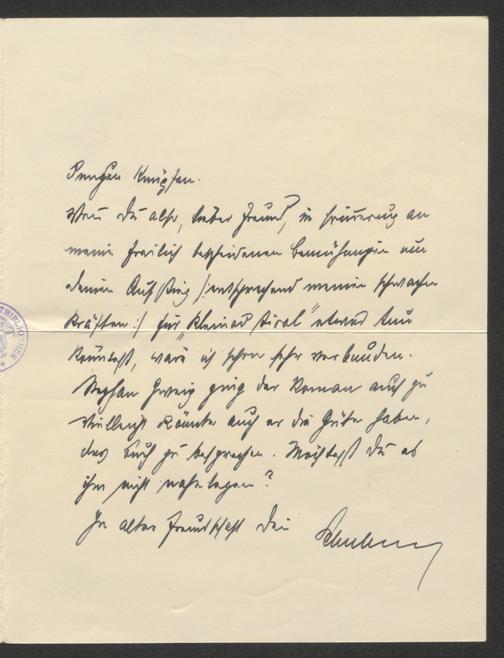 knüpfen.
Wenn du also, lieber Freund, in Erinnerung an
meine freilich bescheidenen Bemühungen um
deinen Aufstieg /:entsprechend meinen schwachen
Kräften:/ für „Kleinod Tirol" etwas tun
könntest, wäre ich schon sehr verbunden.
Stephan Zweig ging der Roman auch zu
vielleicht könnte auch er die Güte haben,
das Buch zu besprechen. Möchtest du es
ihm nicht nahelegen?
In alter Freundschaft dein